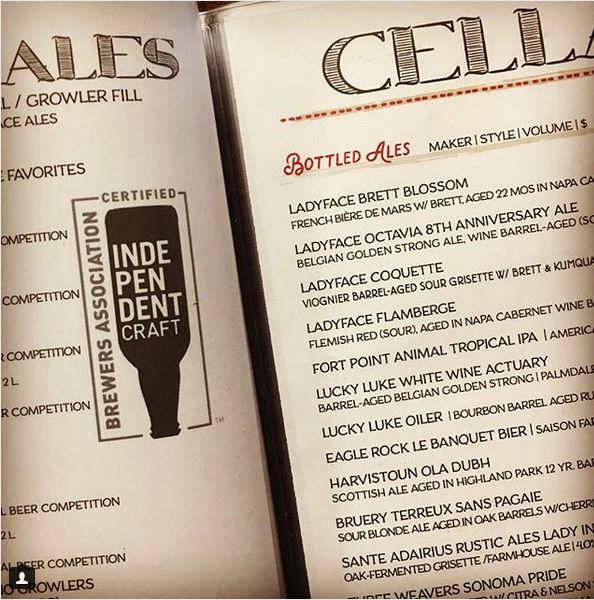 ALES
/ GROWLER FILL
ALES
FAVORITES
COMPETITION
COMPETITION
COMPETITION
2 L.
COMPETITION
BEER COMPETITION
2 L.
BEER COMPETITION
GROWLERS
CERTIFIED
BREWERS ASSOCIATION
INDE
PEN
DENT
CRAFT
TM
BOTTLED ALES MAKER | STYLE | VOLUME | $
LADYFACE BRETT BLOSSOM
FRENCH BIÈRE DE MARS W/ BRETT, AGED 22 MOS IN NAPA
LADYFACE OCTAVIA 8TH ANNIVERSARY ALE
BELGIAN GOLDEN STRONG ALE, WINE BARREL-AGED
LADYFACE COQUETTE
VIOGNIER BARREL-AGED SOUR GRISETTE W/ BRETT & KUMQUA
LADYFACE FLAMBERGE
FLEMISH RED (SOUR), AGED IN NAPA CABERNET WINE
FORT POINT ANIMAL TROPICAL IPA |
LUCKY LUKE WHITE WINE ACTUARY
BARREL-AGED BELGIAN GOLDEN STRONG | PALMDALE
LUCKY LUKE OILER | BOURBON BARREL AGED
EAGLE ROCK LE BANQUET BIER | SAISON
HARVISTOUN OLA DUBH
SCOTTISH ALE AGED IN HIGHLAND PARK 12 YR.
BRUERY TERREUX SANS PAGAIE
SOUR BLONDE ALE AGED IN OAK BARRELS W/CHERR
SANTE ADAIRIUS RUSTIC ALES LADY IN
OAK-FERMENTED GRISETTE /FARMHOUSE ALE |
THREE WEAVERS SONOMA PRIDE
W/ CITRA & NELSON